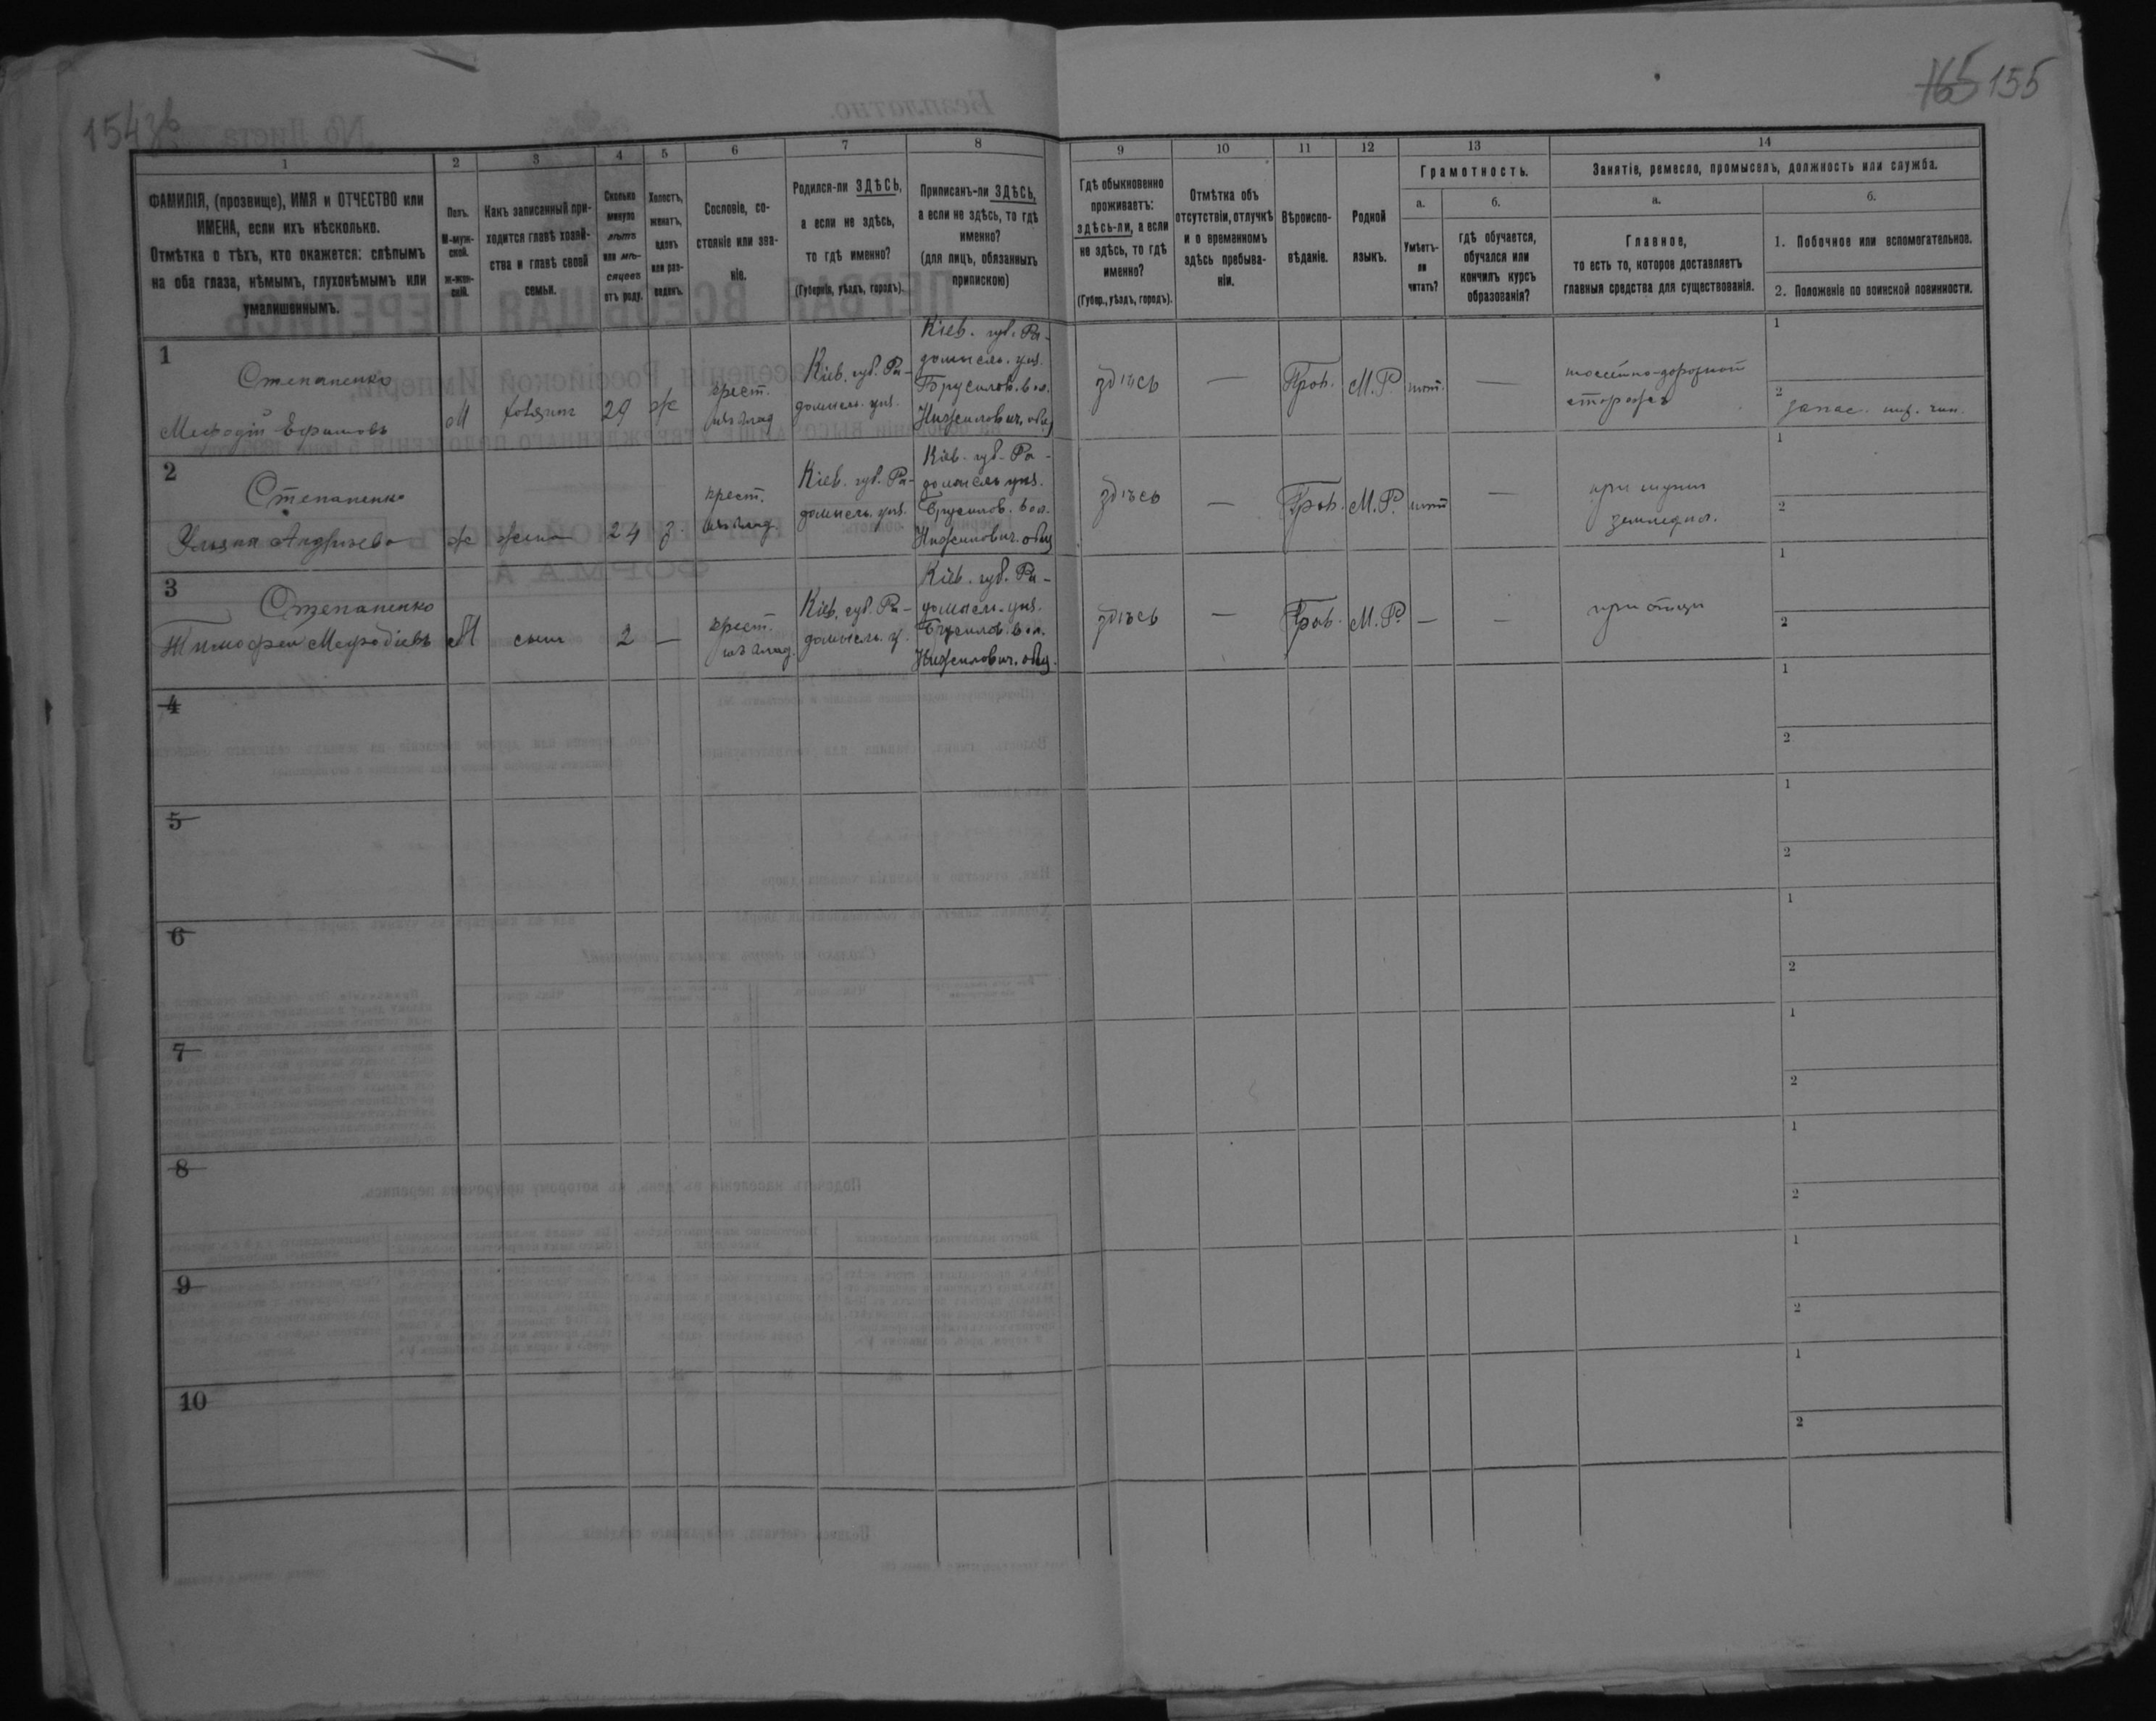 154 об
165 155
1
2
3
4
5
6
7
8
9
10
11
12
13
14
ФАМИЛІЯ, (прозвище), ИМЯ и ОТЧЕСТВО или
ИМЕНА, если ихъ нѣсколько.
Отмѣтка о тѣхъ, кто окажется: слѣпымъ
на оба глаза, нѣмымъ, глухонѣмымъ или
умалишеннымъ.
Полъ.
М-муж-
ской.
Ж-жен-
скій.
Какъ записанный при-
ходится главѣ хозяй-
ства и главѣ своей
семьи.
Сколько
минуло
лѣтъ
или мѣ-
сяцевъ
отъ роду.
Холостъ,
женатъ,
вдовъ
или раз-
веденъ.
Сословіе, со-
стояніе или зва-
ніе.
Родился-ли ЗДѢСЬ,
а если не здѣсь,
то гдѣ именно?
(Губернія, уѣздъ, городъ).
Приписанъ-ли ЗДѢСЬ,
а если не здѣсь, то гдѣ
именно?
(для лицъ, обязанныхъ
припискою)
Гдѣ обыкновенно
проживаетъ:
здѣсь-ли, а если
не здѣсь, то гдѣ
именно?
(Губер., уѣздъ, городъ).
Отмѣтка объ
отсутствіи, отлучкѣ
и о временномъ
здѣсь пребыва-
ніи.
Вѣроиспо-
вѣданіе.
Родной
языкъ.
Грамотность.
а.
Умѣетъ-
ли
читать?
б.
гдѣ обучается,
обучался или
кончилъ курсъ
образованія?
Занятіе, ремесло, промыселъ, должность или служба.
а.
Главное,
то есть то, которое доставляетъ
главныя средства для существованія.
б.
1. Побочное или вспомогательное.
2. Положеніе по воинской повинности.
1
Степаненко
Мефодій Ефимовъ
М
хозяинъ
29
ж
крест.
изъ влад
Кіев. губ. Ра-
домысль. уѣз.
Кіев. губ. Ра-
домысль. уѣз.
Брусилов. вол.
Нижилович. общ
здѣсь
—
Прав.
М.Р.
нѣт.
—
шоссейно-дорожной
сторожъ
1
2
запас. ниж. чин.
2
Степаненко
Ульяна Андреева
ж
жена
24
з
крест.
изъ влад.
Кіев. губ. Ра-
домысль. уѣз.
Кіев. губ. Ра-
домысль уѣз.
Брусилов. вол.
Нижилович. общ
здѣсь
—
Прав.
М.Р.
нѣт
—
при мужѣ
земледѣл.
1
2
3
Степаненко
Тимофей Мефодіевъ
М
сынъ
2
—
крест.
изъ влад.
Кіев. губ. Ра-
домысль. у.
Кіев. губ. Ра-
домысл. уѣз.
Брусилов. вол.
Нижилович. общ.
здѣсь
—
Прав.
М.Р.
—
—
при отцѣ
1
2
4
1
2
5
1
2
6
1
2
7
1
2
8
1
2
9
1
2
10
1
2